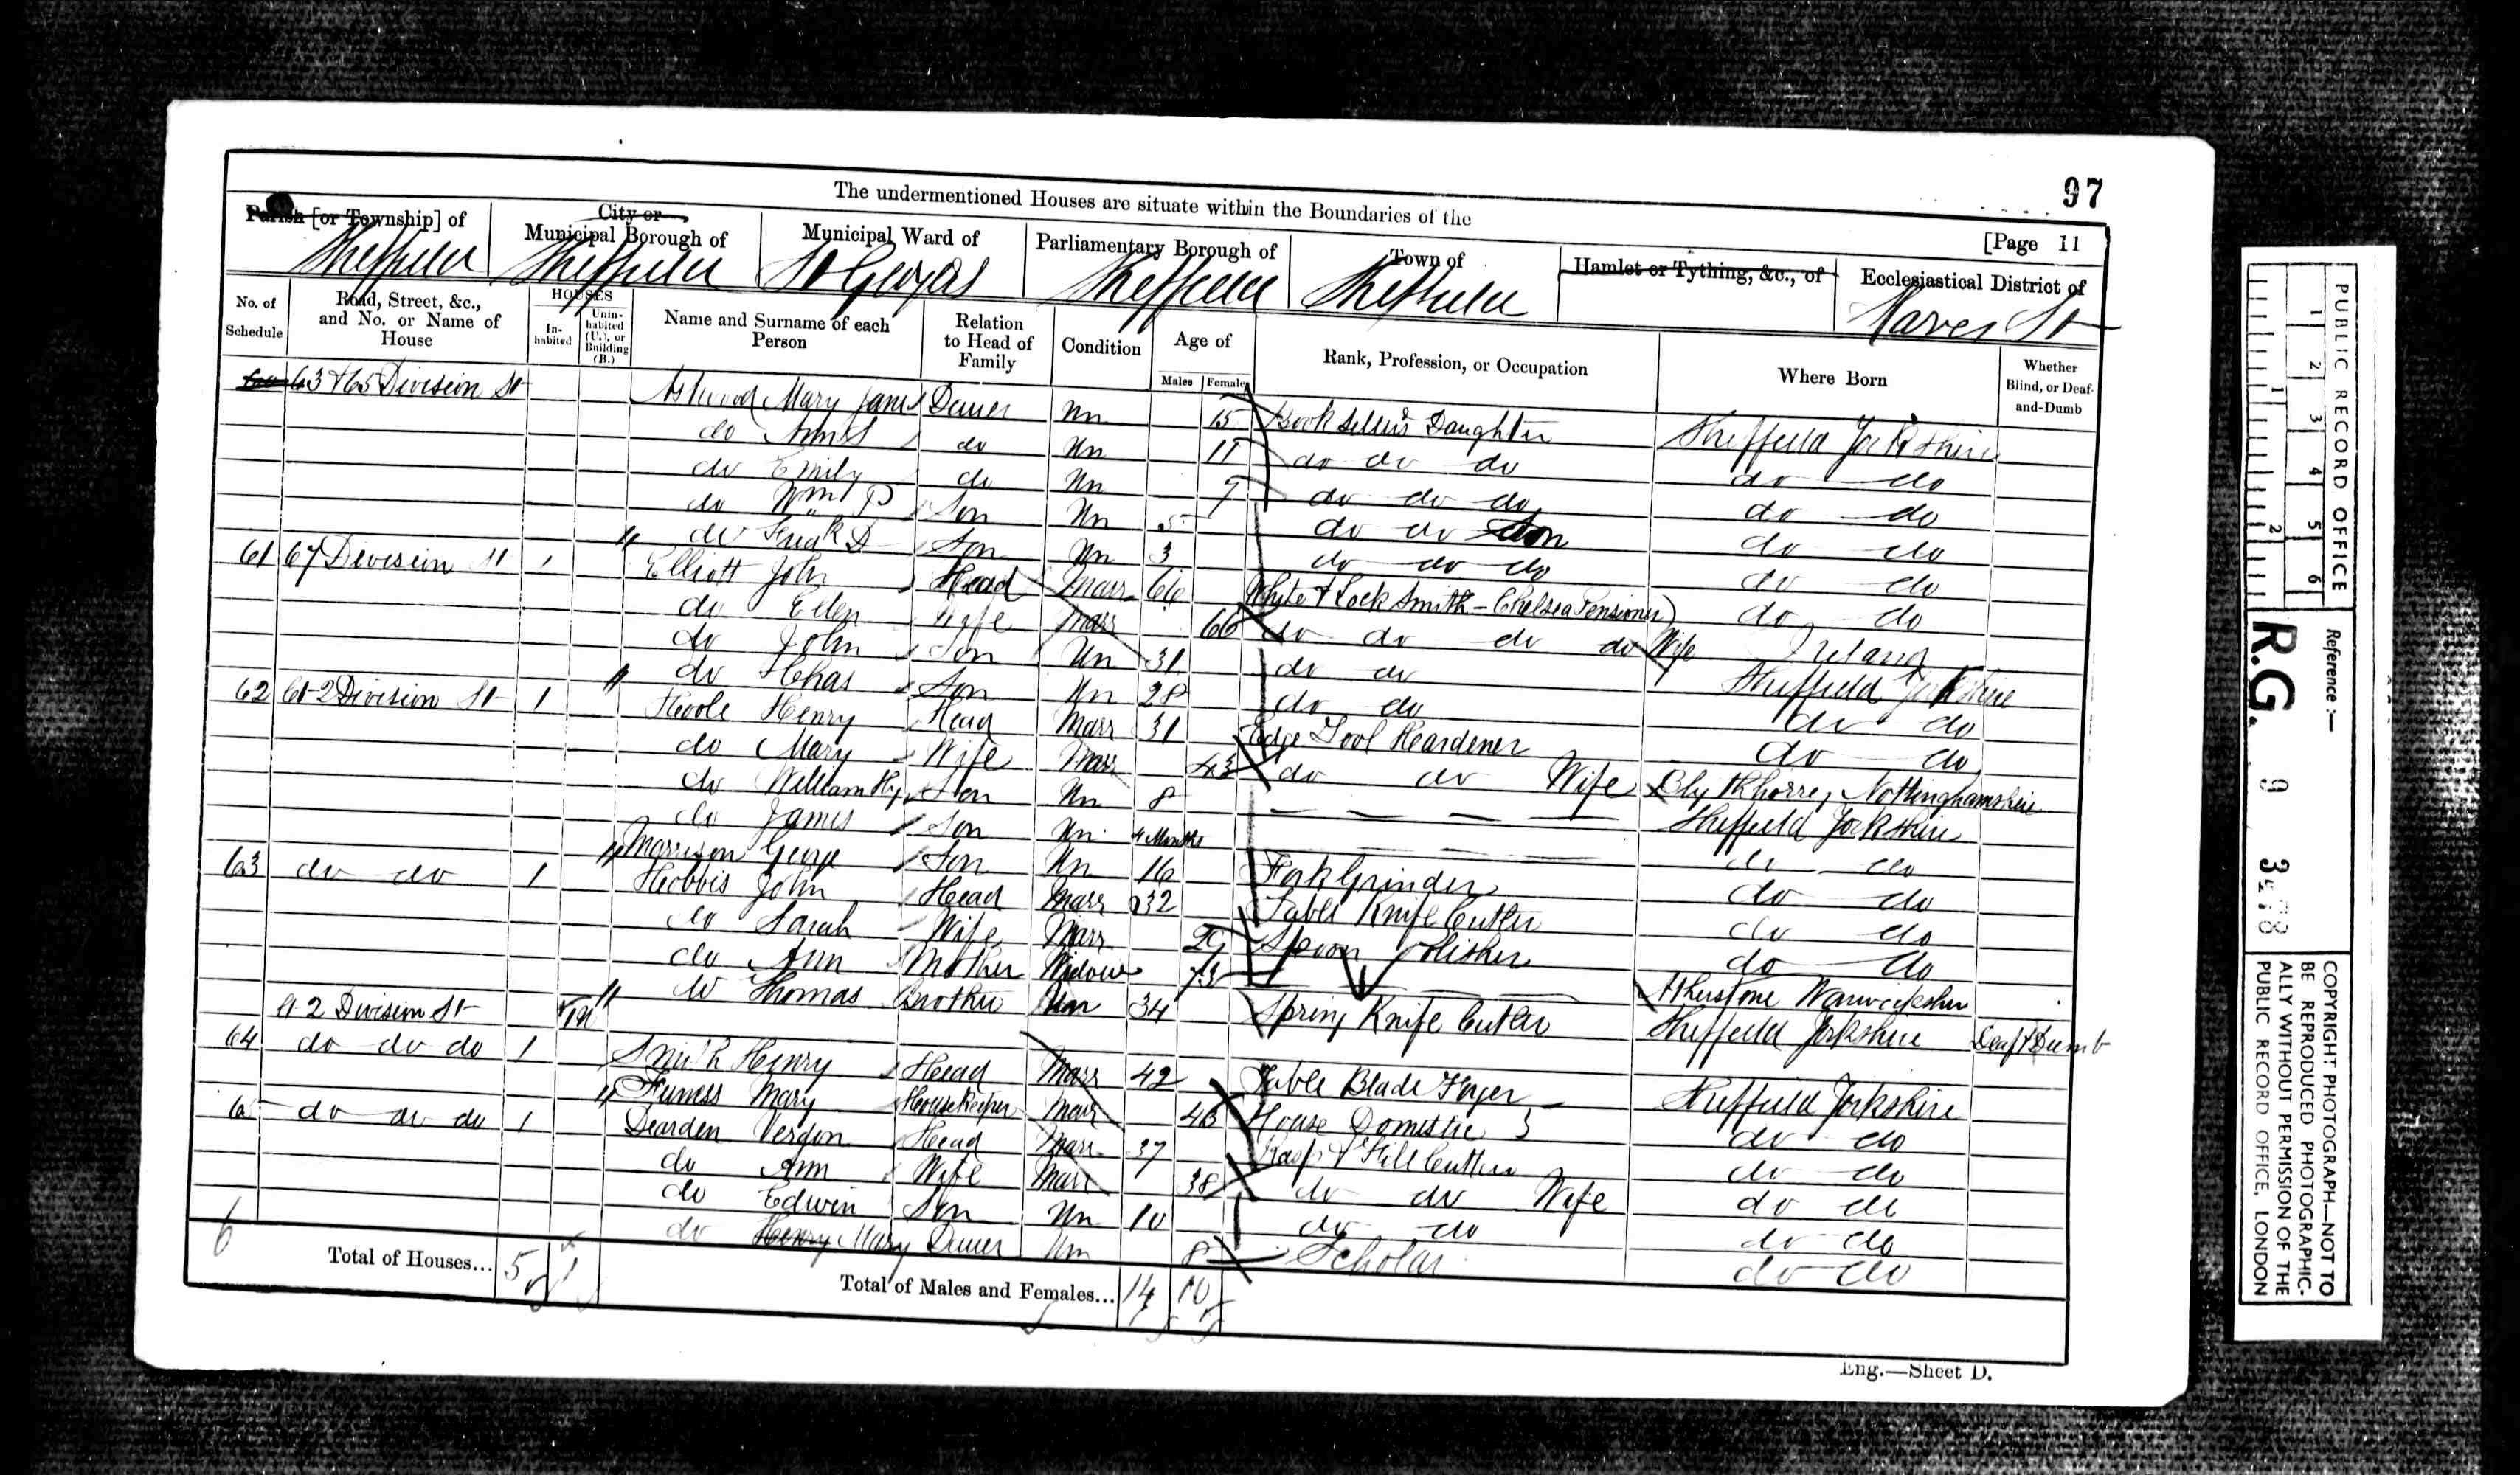 97
The undermentioned Houses are situate within the Boundaries of the
[Page 11
Parish [or Township] of
Sheffield
City or
Municipal Borough of
Sheffield
Municipal Ward of
St Georges
Parliamentary Borough of
Sheffield
Town of
Sheffield
Hamlet or Tything, &c., of
Ecclesiastical District of
St
No. of Schedule
Road, Street, &c., and No. or Name of House
HOUSES
In-habited
Unin-habited (U.), or Building (B.)
Name and Surname of each Person
Relation to Head of Family
Condition
Age of
Males
Females
Rank, Profession, or Occupation
Where Born
Whether Blind, or Deaf-and-Dumb
63 & 65 Division St Mary Jane Dauer Un 15 Book Sellers Daughter Sheffield Yorkshire
do do Un 11 do do do do do
do Emily do Un 9 do do do do do
do Wm P Son Un 5 do do Son do do
do Fredk D Son Un 3 do do do do do
61 67 Division St 1 Elliott John Head Marr 66 White & Lock Smith - Chelsea Pensioner do do
do Ellen Wife Marr 66 do do do do Wife Ireland
do John Son Un 31 do do Sheffield Yorkshire
do Son Un 28 do do do do
62 61-2 Division St 1 Hoole Henry Head Marr 31 Edge Tool Heardener do do
do Mary Wife Marr 43 do do Wife Nottinghamshire
do William Hy Son Un 8 Sheffield Yorkshire
do James Son Un 4 Months do do
63 do do 1 Morrison George Son Un 16 Fork Grinder do do
Hobbis John Head Marr 32 Table Knife Cutler do do
do Sarah Wife Marr 29 Spoon Polisher do do
do Ann Mother Widow 73 Atherstone Warwickshire
do Thomas Brother Un 34 Spring Knife Cutler Sheffield Yorkshire Deaf & Dumb
61-2 Division St
64 do do do 1 Smith Henry Head Marr 42 Table Blade Forger Sheffield Yorkshire
Furness Mary Housekeeper Marr 43 House Domestic do do
65 do do do 1 Dearden Verdon Head Marr 37 Rasp & File Cutter do do
do Ann Wife Marr 38 do do Wife do do
do Edwin Son Un 10 do do do do
do Henry Mary Dauer Un 8 Scholar do do
6
Total of Houses... 5 1
Total of Males and Females... 14 10
Eng.—Sheet D.
PUBLIC RECORD OFFICE
1 2 3 4 5 6
1 2
Reference :—
R.G. 9 3478
COPYRIGHT PHOTOGRAPH—NOT TO BE REPRODUCED PHOTOGRAPHIC-ALLY WITHOUT PERMISSION OF THE PUBLIC RECORD OFFICE, LONDON